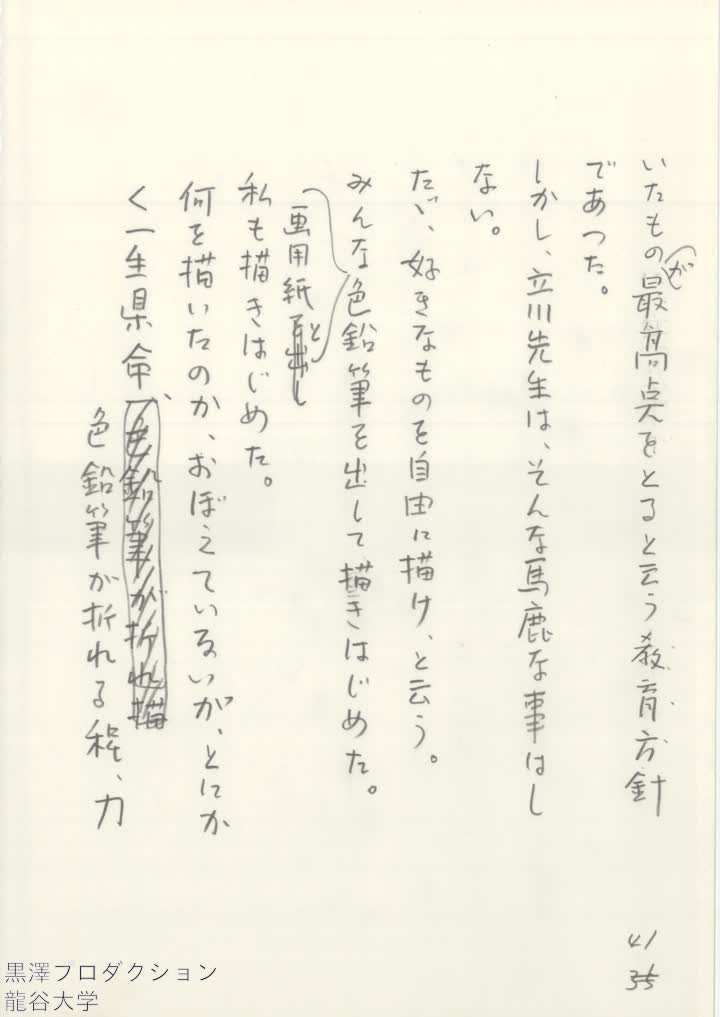 いたものが最高点をとると云う教育方針
であつた。
しかし、立川先生は、そんな馬鹿な事はし
ない。
たゞ、好きなものを自由に描け、と云う。
みんな色鉛筆を出して描きはじめた。
画用紙と
を出し
私も描きはじめた。
何を描いたのか、おぼえていないが、とにか
く一生県命、
色鉛筆が折れ描
色鉛筆が折れる程、力
41
35
黒澤プロダクション
龍谷大学